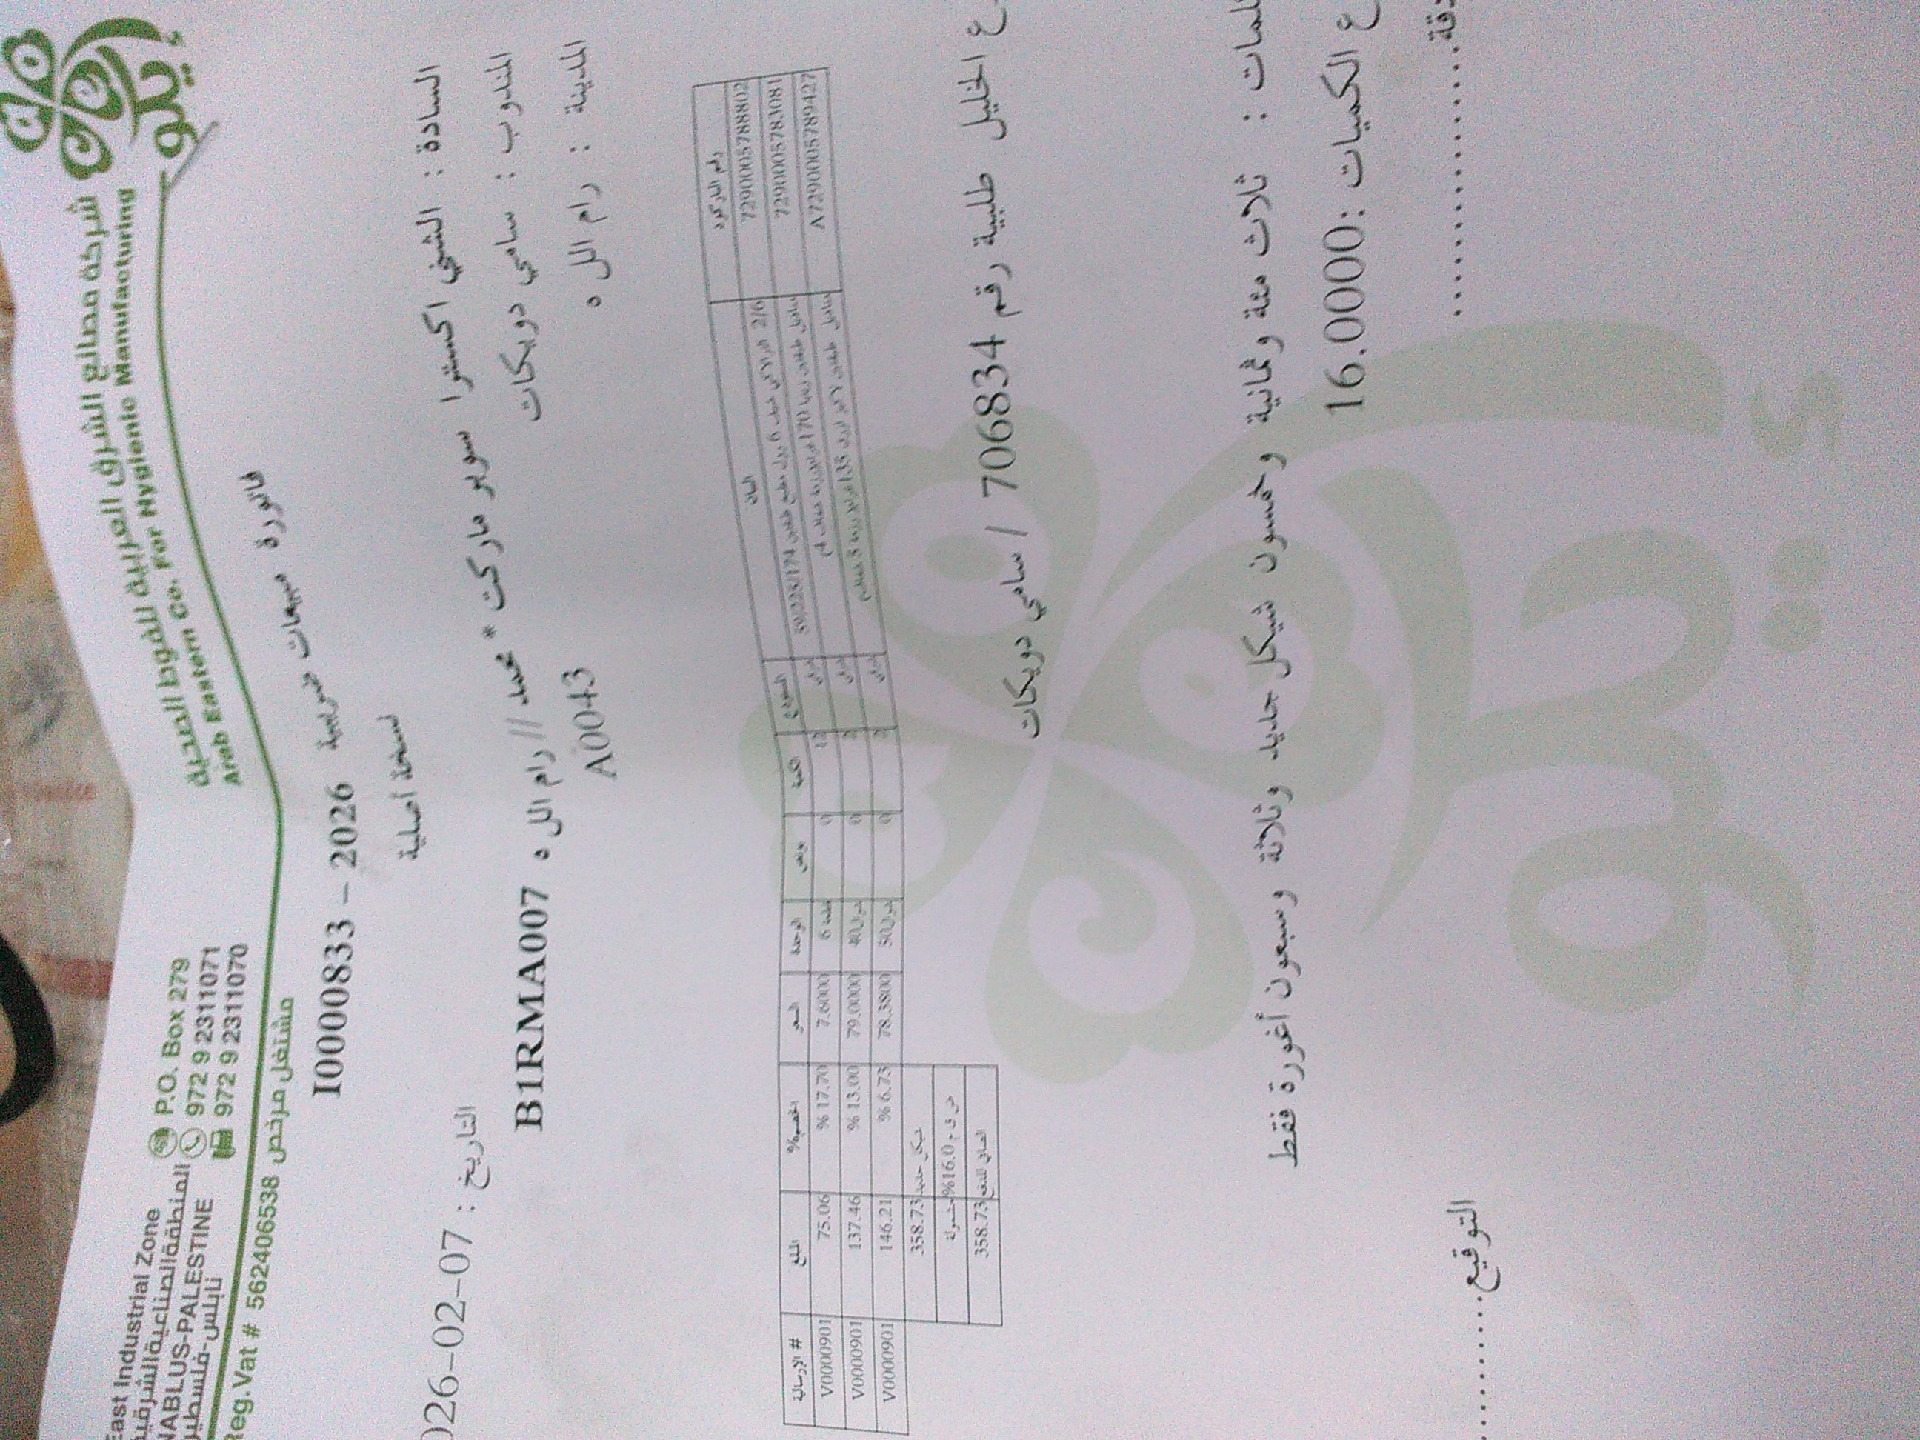 أيدو
شركة مصانع الشرق العربية للفوط الصحية
Arab Eastern Co. For Hygienic Manufacturing
East Industrial Zone P.O. Box 279
المنطقة الصناعية الشرقية 972 9 2311071
NABLUS-PALESTINE 972 9 2311070
نابلس-فلسطين
Reg.Vat # 562406538 مشتغل مرخص
فاتورة مبيعات ضريبية I0000833 – 2026
نسخة أصلية
السادة : الشني اكسترا سوبر ماركت * محمد // رام الل ه B1RMA007
التاريخ : 026-02-07
المندوب : سامي دويكات
المدينة : رام الل ه A0043
رقم الباركود المادة المستودع الكمية بونص الوحدة السعر الخصم% المبلغ # الارسالية
7290005788802 12 0 6 7.6000 % 17.70 75.06 V0000901
7290005783081 2 0 شوال40 79.0000 % 13.00 137.46 V0000901
A7290005789427 2 0 شوال50 78.3800 % 6.73 146.21 V0000901
شيكل جديد 358.73
%16.0 مشمولة
الصافي للدفع 358.73
ع الخليل طلبية رقم 706834 / سامي دويكات
لمات : ثلاث مئة وثمانية وخمسون شيكل جديد وثلاثة وسبعون أغورة فقط
ع الكميات :16.0000
التوقيع...........